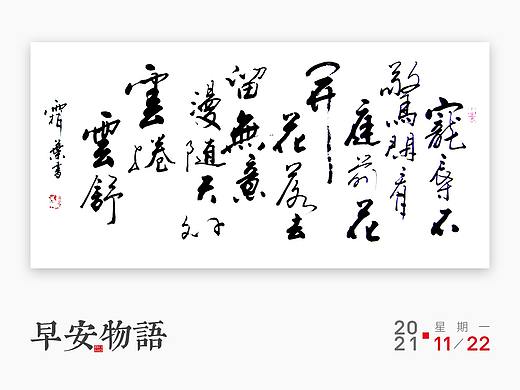 寵辱不
驚閒看
庭前花
開
花落去
留無意
漫隨天
外
雲捲
雲舒
霜葉書
早安物語
2021
星期一
11/22